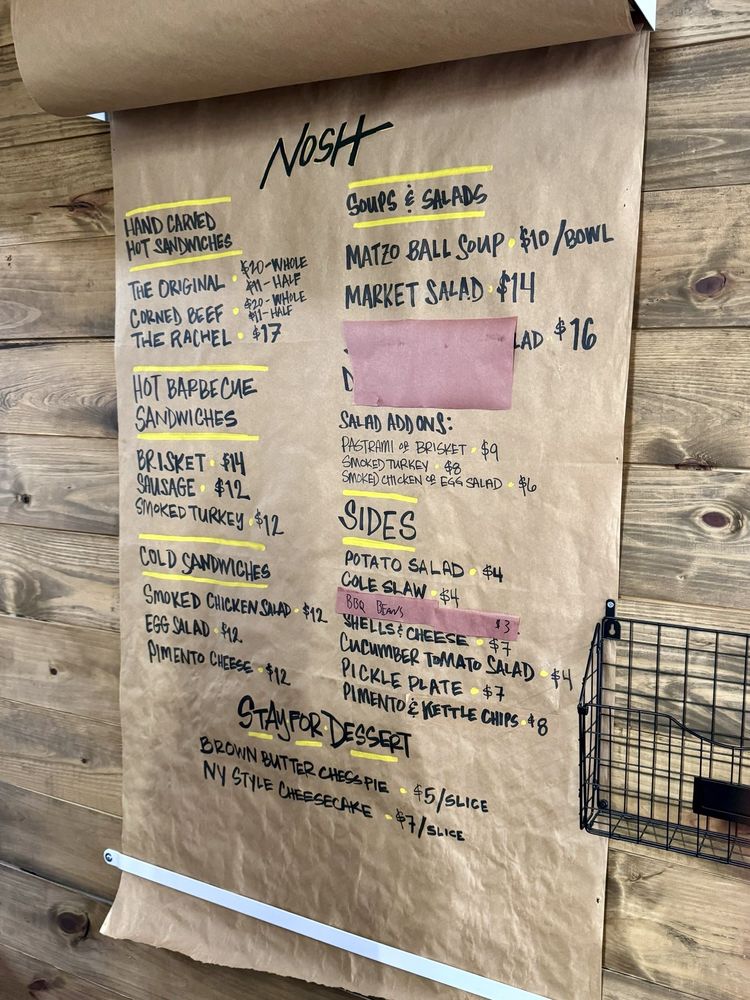 NOSH
HAND CARVED
HOT SANDWICHES
THE ORIGINAL • $20-WHOLE
$11-HALF
CORNED BEEF • $20-WHOLE
$11-HALF
THE RACHEL • $17
HOT BARBECUE
SANDWICHES
BRISKET • $14
SAUSAGE • $12
SMOKED TURKEY • $12
COLD SANDWICHES
SMOKED CHICKEN SALAD • $12
EGG SALAD • $12
PIMENTO CHEESE • $12
SOUPS & SALADS
MATZO BALL SOUP • $10/BOWL
MARKET SALAD • $14
$16
SALAD ADD ONS:
PASTRAMI OR BRISKET • $9
SMOKED TURKEY • $8
SMOKED CHICKEN OR EGG SALAD • $6
SIDES
POTATO SALAD • $4
COLE SLAW • $4
BBQ BEANS $3
SHELLS & CHEESE • $7
CUCUMBER TOMATO SALAD • $4
PICKLE PLATE • $7
PIMENTO & KETTLE CHIPS • $8
STAY FOR DESSERT
BROWN BUTTER CHESS PIE • $5/SLICE
NY STYLE CHEESECAKE • $7/SLICE